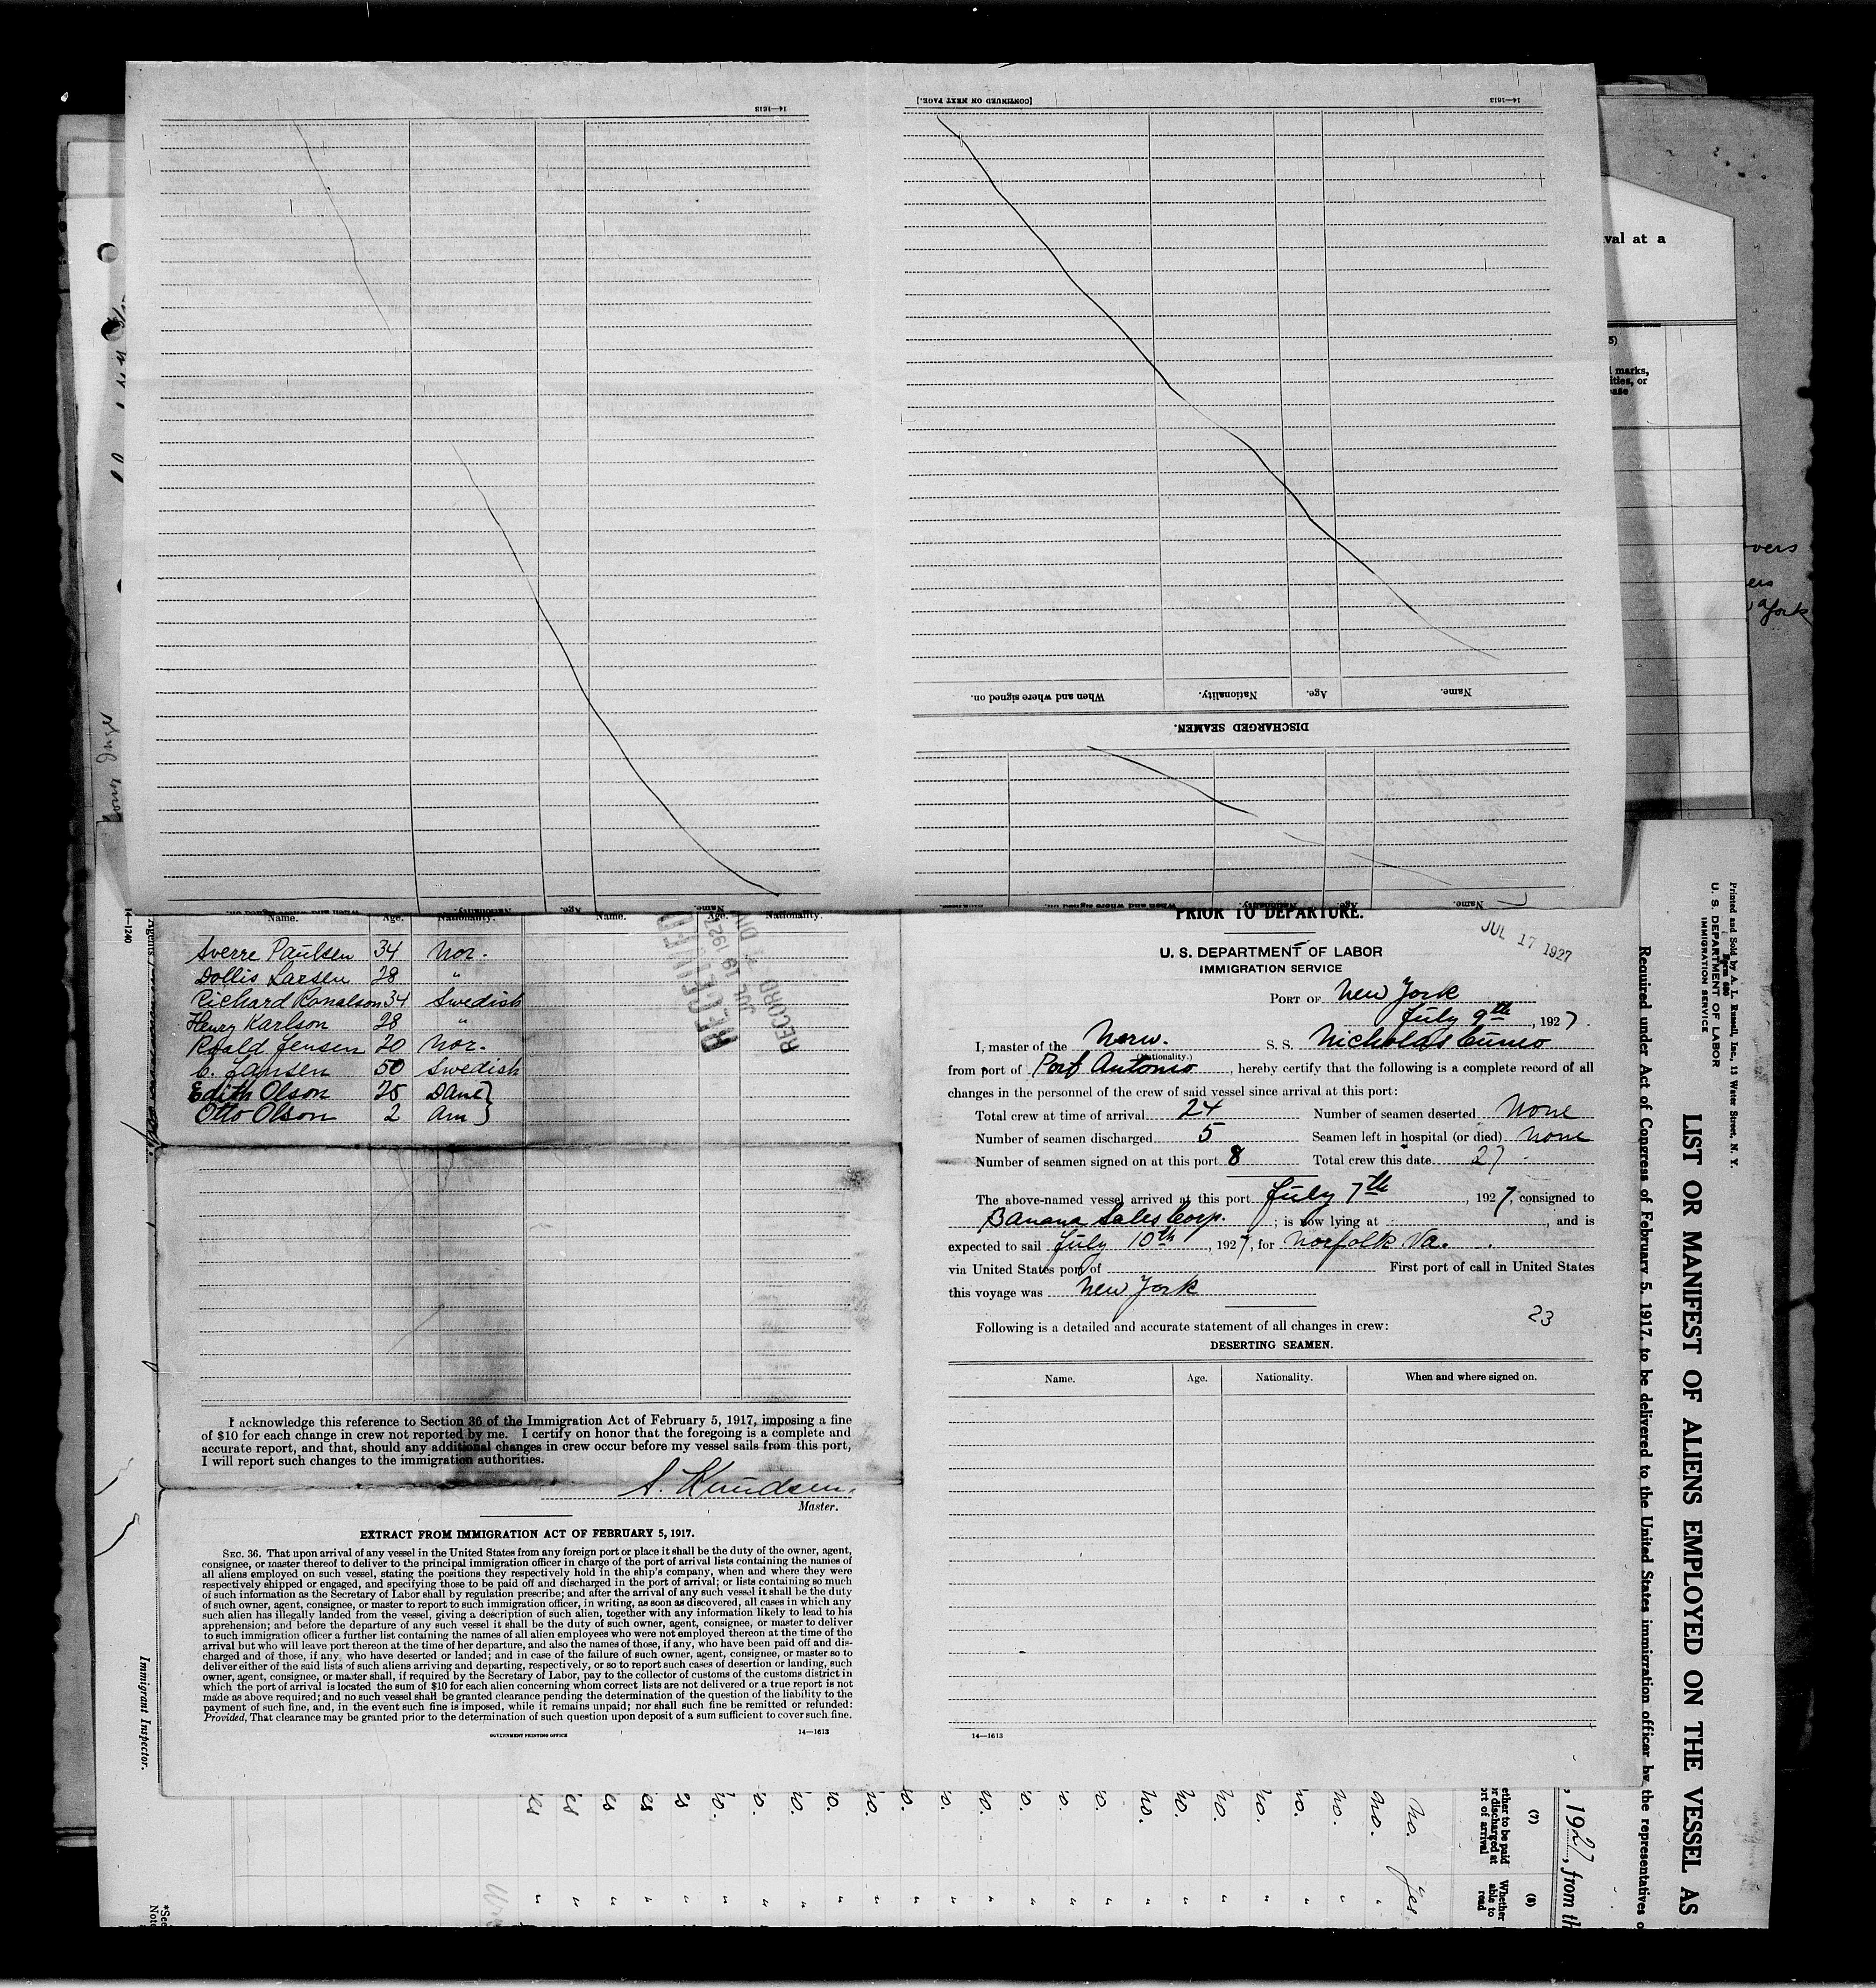 14—1613
[CONTINUED ON NEXT PAGE.]
14—1613
When and where signed on.
Nationality.
Age.
Name.
DISCHARGED SEAMEN.
Name.
Age.
Nationality.
When and where signed on.
Name.
Age.
Nationality.
Name.
Age.
Nationality.
Sverre Paulsen 34 Nor.
Dollis Larsen 28 "
Richard Ronalson 34 Swedish
Henry Karlson 28 "
Roald Jensen 20 Nor.
C. Jansen 50 Swedish
Edith Olson 25 Dane
Otto Olson 2 Am
RECEIVED
JUL 19 1927
RECORD DIV
I acknowledge this reference to Section 36 of the Immigration Act of February 5, 1917, imposing a fine
of $10 for each change in crew not reported by me. I certify on honor that the foregoing is a complete and
accurate report, and that, should any additional changes in crew occur before my vessel sails from this port,
I will report such changes to the immigration authorities.
S. Knudsen
Master.
EXTRACT FROM IMMIGRATION ACT OF FEBRUARY 5, 1917.
SEC. 36. That upon arrival of any vessel in the United States from any foreign port or place it shall be the duty of the owner, agent,
consignee, or master thereof to deliver to the principal immigration officer in charge of the port of arrival lists containing the names of
all aliens employed on such vessel, stating the positions they respectively hold in the ship's company, when and where they were
respectively shipped or engaged, and specifying those to be paid off and discharged in the port of arrival; or lists containing so much
of such information as the Secretary of Labor shall by regulation prescribe; and after the arrival of any such vessel it shall be the duty
of such owner, agent, consignee, or master to report to such immigration officer, in writing, as soon as discovered, all cases in which any
such alien has illegally landed from the vessel, giving a description of such alien, together with any information likely to lead to his
apprehension; and before the departure of any such vessel it shall be the duty of such owner, agent, consignee, or master to deliver
to such immigration officer a further list containing the names of all alien employees who were not employed thereon at the time of the
arrival but who will leave port thereon at the time of her departure, and also the names of those, if any, who have been paid off and dis-
charged and of those, if any, who have deserted or landed; and in case of the failure of such owner, agent, consignee, or master so to
deliver either of the said lists of such aliens arriving and departing, respectively, or so to report such cases of desertion or landing, such
owner, agent, consignee, or master shall, if required by the Secretary of Labor, pay to the collector of customs of the customs district in
which the port of arrival is located the sum of $10 for each alien concerning whom correct lists are not delivered or a true report is not
made as above required; and no such vessel shall be granted clearance pending the determination of the question of the liability to the
payment of such fine, and, in the event such fine is imposed, while it remains unpaid; nor shall such fine be remitted or refunded:
Provided, That clearance may be granted prior to the determination of such question upon deposit of a sum sufficient to cover such fine.
GOVERNMENT PRINTING OFFICE
14—1613
PRIOR TO DEPARTURE.
JUL 17 1927
U. S. DEPARTMENT OF LABOR
IMMIGRATION SERVICE
PORT OF New York
July 9th, 1927.
I, master of the Norw. S. S. Nicholas Cuneo
(Nationality.)
from port of Port Antonio, hereby certify that the following is a complete record of all
changes in the personnel of the crew of said vessel since arrival at this port:
Total crew at time of arrival 24 Number of seamen deserted None
Number of seamen discharged 5 Seamen left in hospital (or died) none
Number of seamen signed on at this port 8 Total crew this date 27
The above-named vessel arrived at this port July 7th, 1927, consigned to
Banana Sales Corp.; is now lying at , and is
expected to sail July 10th, 1927, for Norfolk Va.
via United States port of First port of call in United States
this voyage was New York
23
Following is a detailed and accurate statement of all changes in crew:
DESERTING SEAMEN.
Name. Age. Nationality. When and where signed on.
14—1613
val at a
marks,
ities, or
ease
vers
ers
York
14—1240
Agents
Immigrant Inspector.
*See
Note
Printed and Sold by A. L. Russell, Inc., 13 Water Street, N. Y.
Form 680
U. S. DEPARTMENT OF LABOR
IMMIGRATION SERVICE
LIST OR MANIFEST OF ALIENS EMPLOYED ON THE VESSEL AS
Required under Act of Congress of February 5, 1917, to be delivered to the United States immigration officer by the representatives o
, 1927, from th
(7)
ether to be paid
r discharged at
ort of arrival
(8)
Whether
able to
read
no. yes.